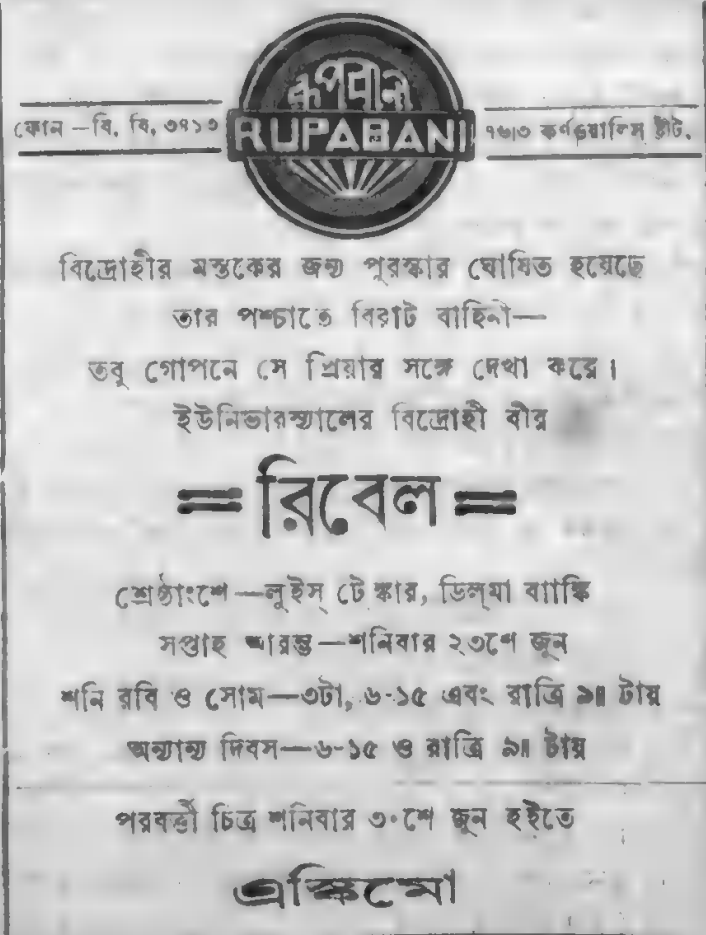 রূপবাণী
RUPABANI
ফোন —বি, বি, ৩৪১৩
৭৬।৩ কর্ণওয়ালিস্ ষ্ট্রীট,
বিদ্রোহীর মস্তকের জন্য পুরস্কার ঘোষিত হয়েছে
তার পশ্চাতে বিরাট বাহিনী—
তবু গোপনে সে প্রিয়ার সঙ্গে দেখা করে।
ইউনিভারস্যালের বিদ্রোহী বীর
=রিবেল=
শ্রেষ্ঠাংশে—লুইস্ টেঙ্কার, ভিল্‌মা ব্যাঙ্কি
সপ্তাহ আরম্ভ—শনিবার ২৩শে জুন
শনি রবি ও সোম—৩টা, ৬-১৫ এবং রাত্রি ৯॥ টায়
অন্যান্য দিবস—৬-১৫ ও রাত্রি ৯॥ টায়
পরবর্ত্তী চিত্র শনিবার ৩০শে জুন হইতে
এস্কিমো